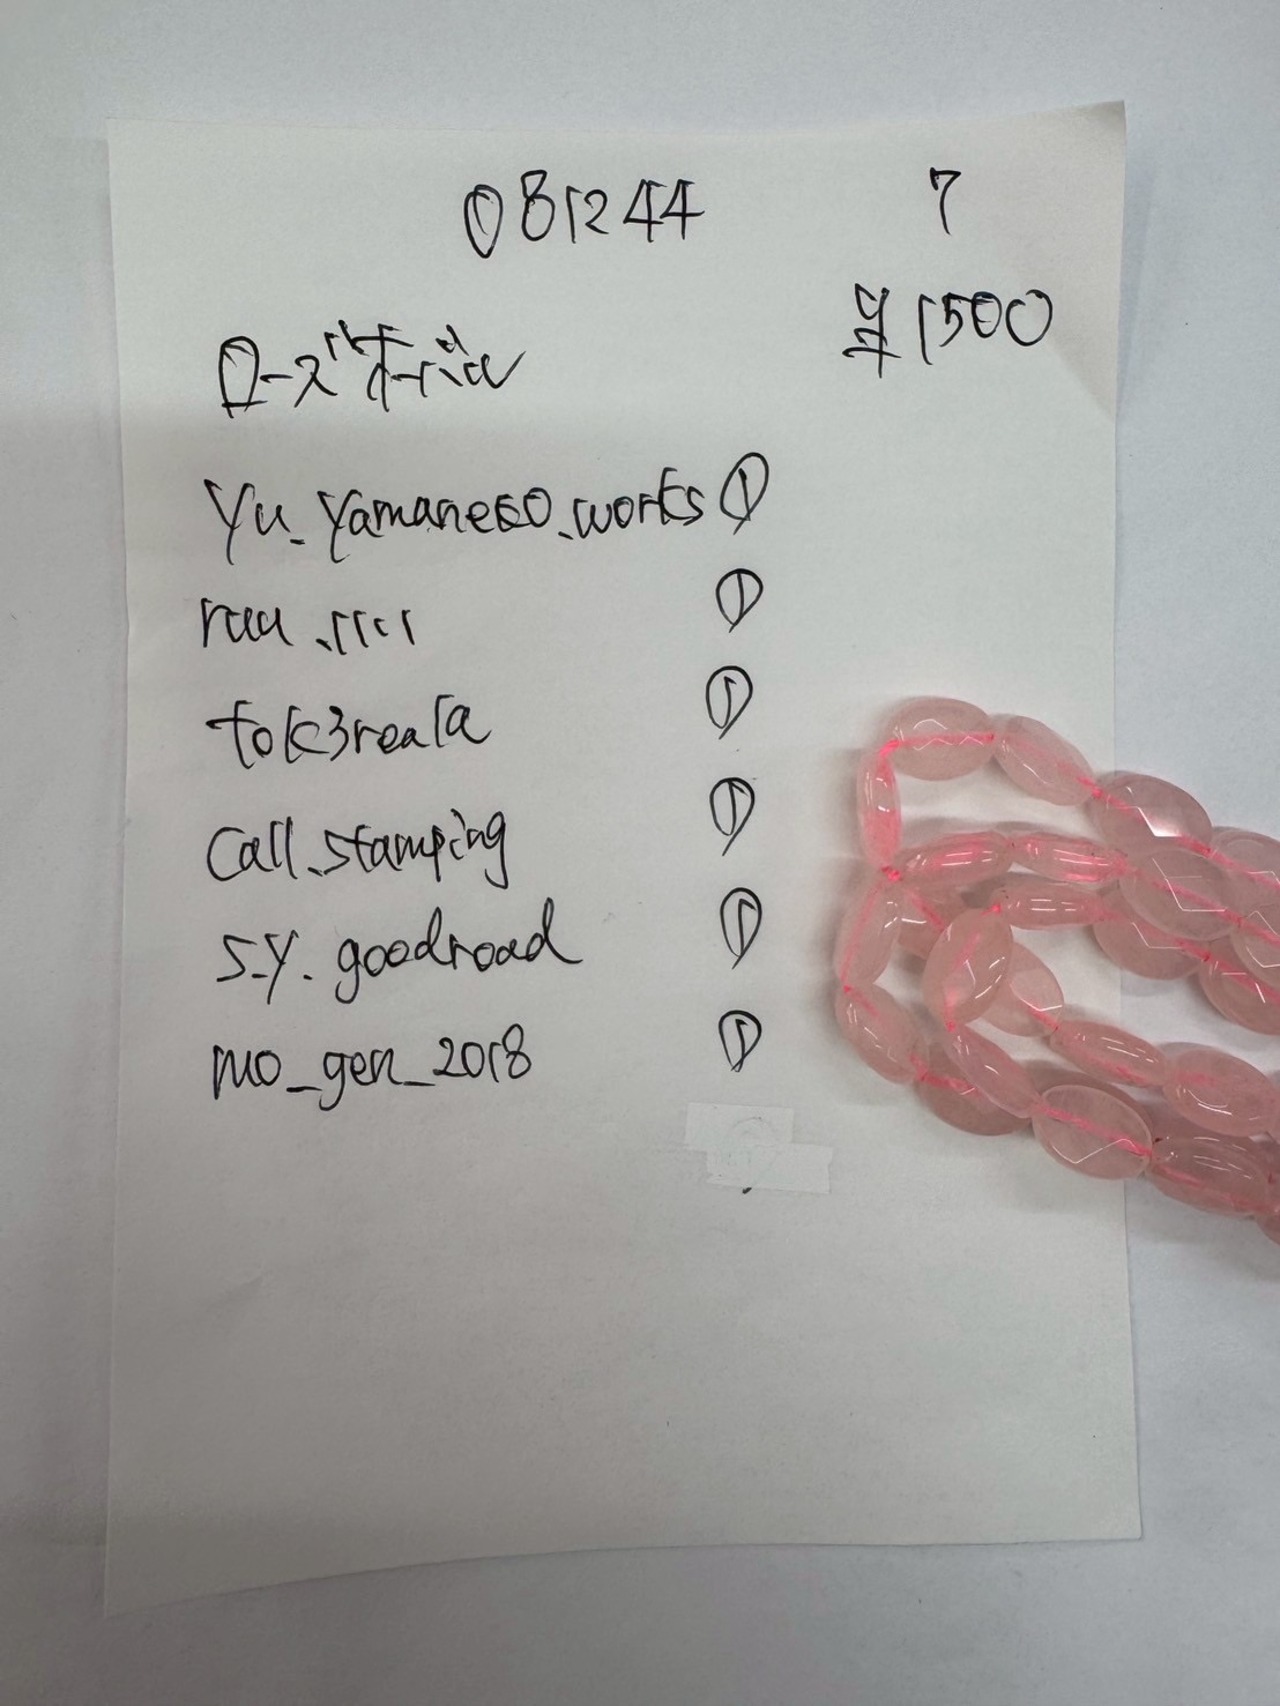 081244 7
¥1500
ローズオーバル
Yu_Yamaneko_works ①
ruu.rrr ①
tok3reala ①
Call.stamping ①
s.y.goodroad ①
mo_gen_2018 ①